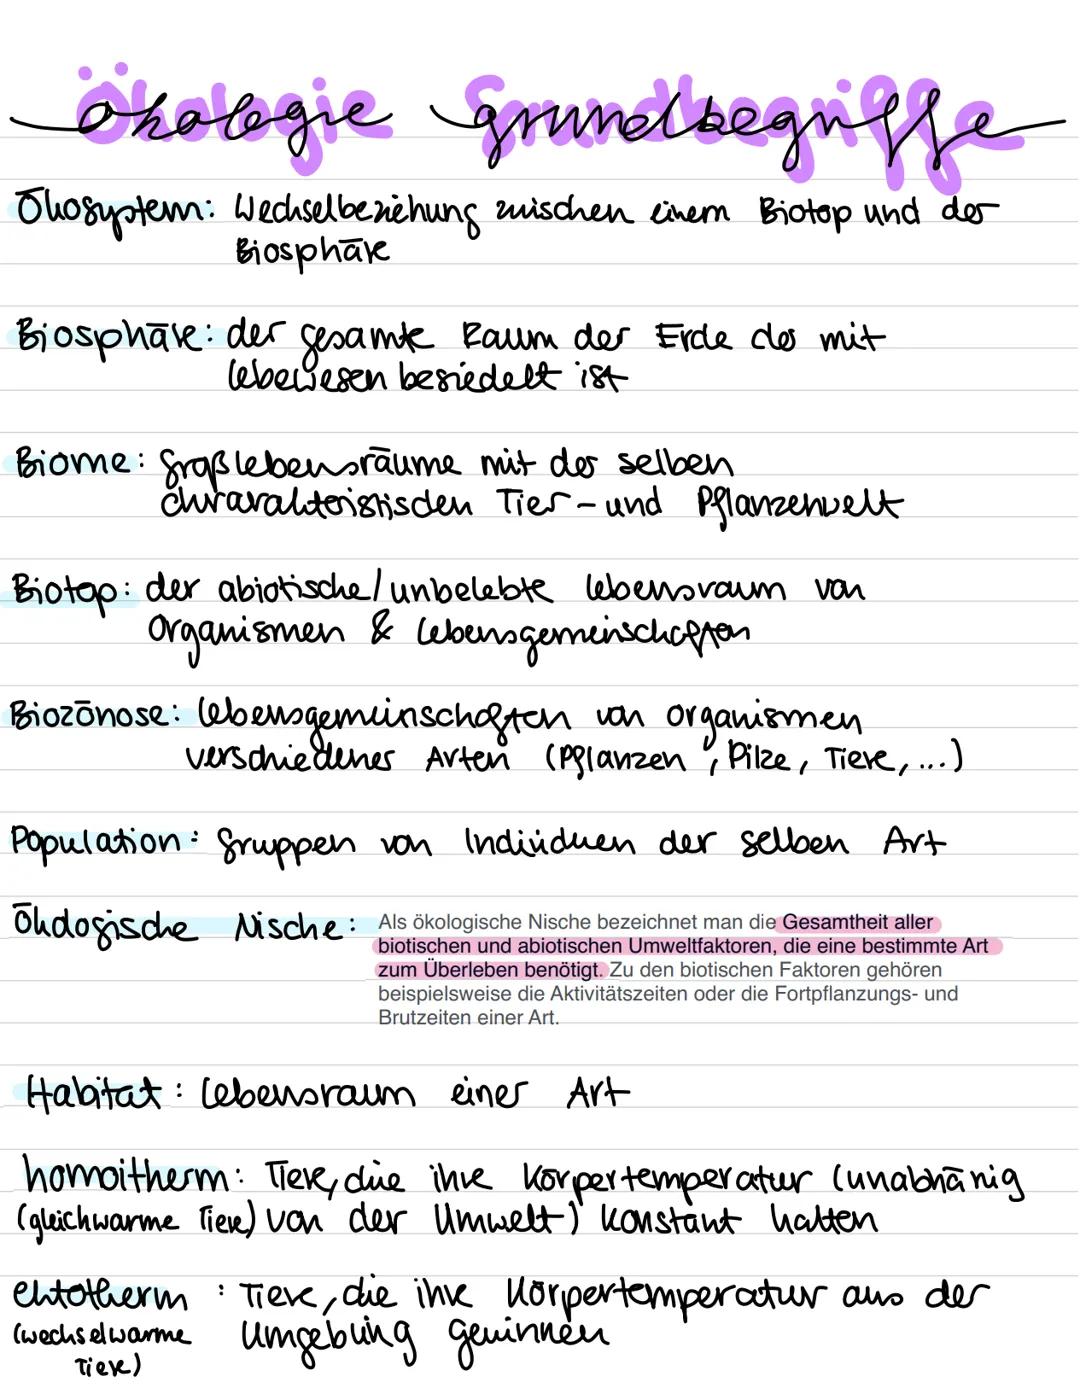 Ökologie Grundbegriffe
Ökosystem: Wechselbeziehung zwischen einem Biotop und der
Biosphäre
Biosphäre: der gesamte Raum der Erde der mit
lebewesen besiedelt ist
Biome: Großlebensräume mit der selben
charakteristischen Tier- und Pflanzenwelt
Biotop: der abiotische/unbelebte lebensraum von
Organismen & lebensgemeinschaften
Biozönose: lebensgemeinschaften von organismen
verschiedener Arten (Pflanzen, Pilze, Tiere, ...)
Population: Gruppen von Individuen der selben Art
Ökologische Nische: Als ökologische Nische bezeichnet man die Gesamtheit aller
biotischen und abiotischen Umweltfaktoren, die eine bestimmte Art
zum Überleben benötigt. Zu den biotischen Faktoren gehören
beispielsweise die Aktivitätszeiten oder die Fortpflanzungs- und
Brutzeiten einer Art.
Habitat: lebensraum einer Art
homoitherm: Tiere, die ihre Körpertemperatur (unabhänig
(gleichwarme Tiere) von der Umwelt) konstant halten
ektotherm : Tiere, die ihre Körpertemperatur aus der
(wechselwarme Umgebung gewinnen
Tiere)